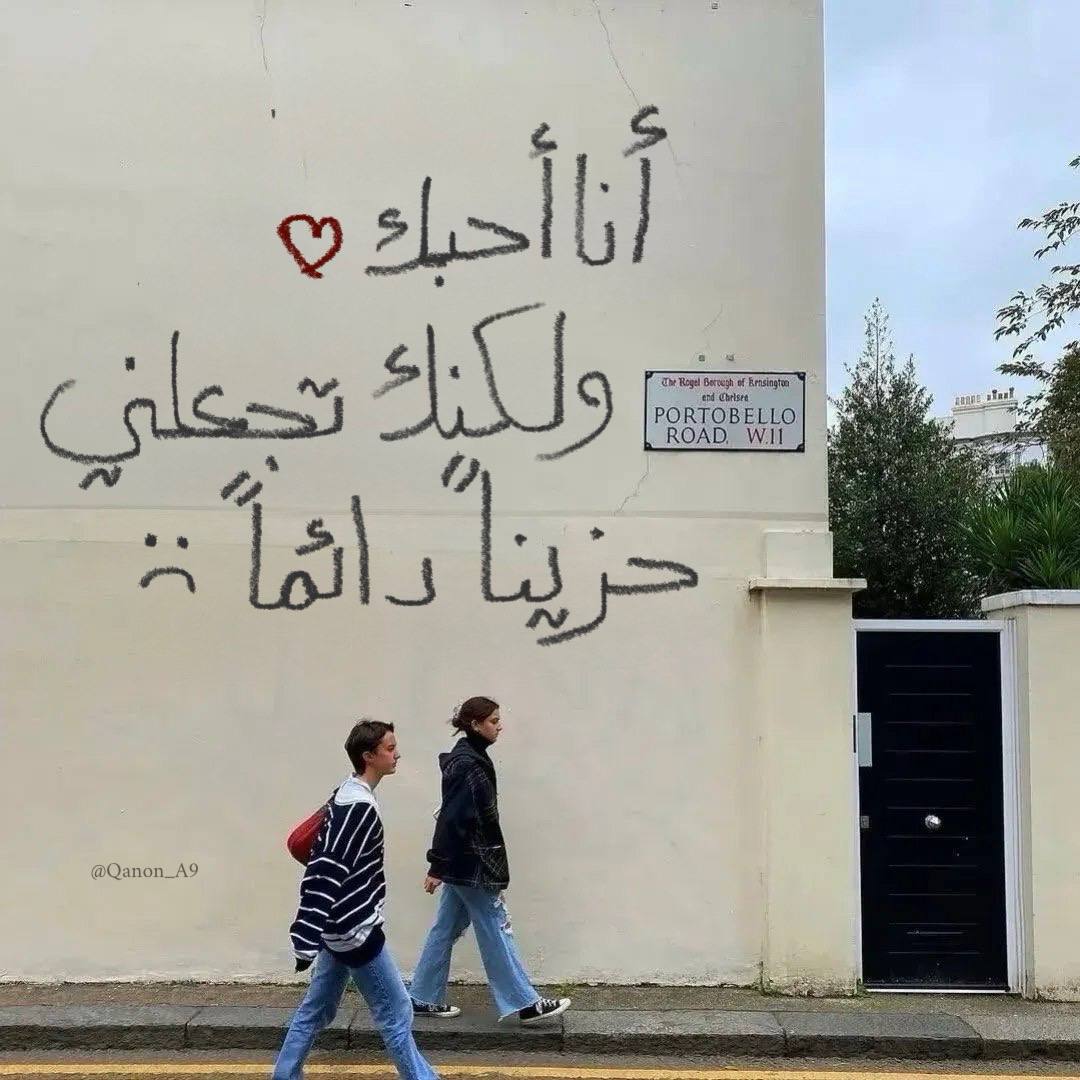 أنا أحبك ♥
ولكنك تجعلني
حزيناً دائماً :(
The Royal Borough of Kensington
and Chelsea
PORTOBELLO
ROAD. W.11
@Qanon_A9